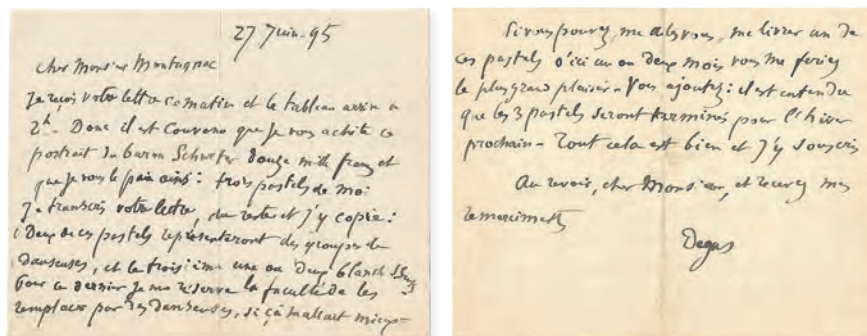 27 Juin. 95
cher Monsieur Montagnac
Je reçois votre lettre ce matin et le tableau arrive à
2h. Donc il est convenu que je vous achète ce
portrait du baron Schwiter douze mille francs et
que je vous le paie ainsi : trois pastels de moi
Je transcris votre lettre, du reste et j'y copie :
Deux de ces pastels représenteront des groupes de
danseuses, et le troisième une ou deux
Pour ce dernier je me réserve la faculté de les
remplacer par des danseuses, si çà m'allait mieux-
Si vous pouvez, me dites vous, me livrer un de
ces pastels d'ici un ou deux mois vous me feriez
le plus grand plaisir - Vous ajoutez : il est entendu
que les 3 pastels seront terminés pour l'hiver
prochain - Tout cela est bien et j'y souscris
Au revoir, cher Monsieur, et recevez mes
remerciments
Degas